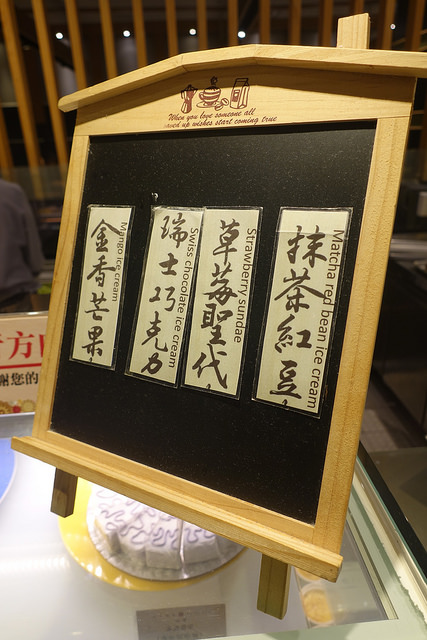 When you love someone all
saved up wishes start coming true
抹茶紅豆
Matcha red bean ice cream
草莓聖代
Strawberry sundae
瑞士巧克力
Swiss chocolate ice cream
金香芒果
Mango ice cream
方
謝您的